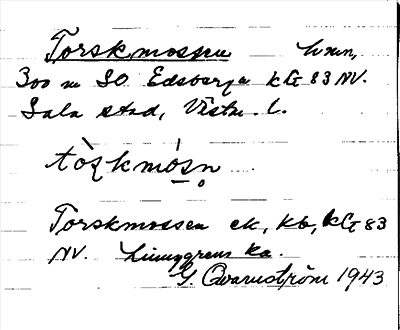 Torskmossen
300 m SO Edsberga kG 83 NV.
Sala stad, Västm. l.
tòʂkmós̥n̥
Torskmossen ek, kb, kG 83
NV. Ljunggrens ka.
G. Qvarnström 1943